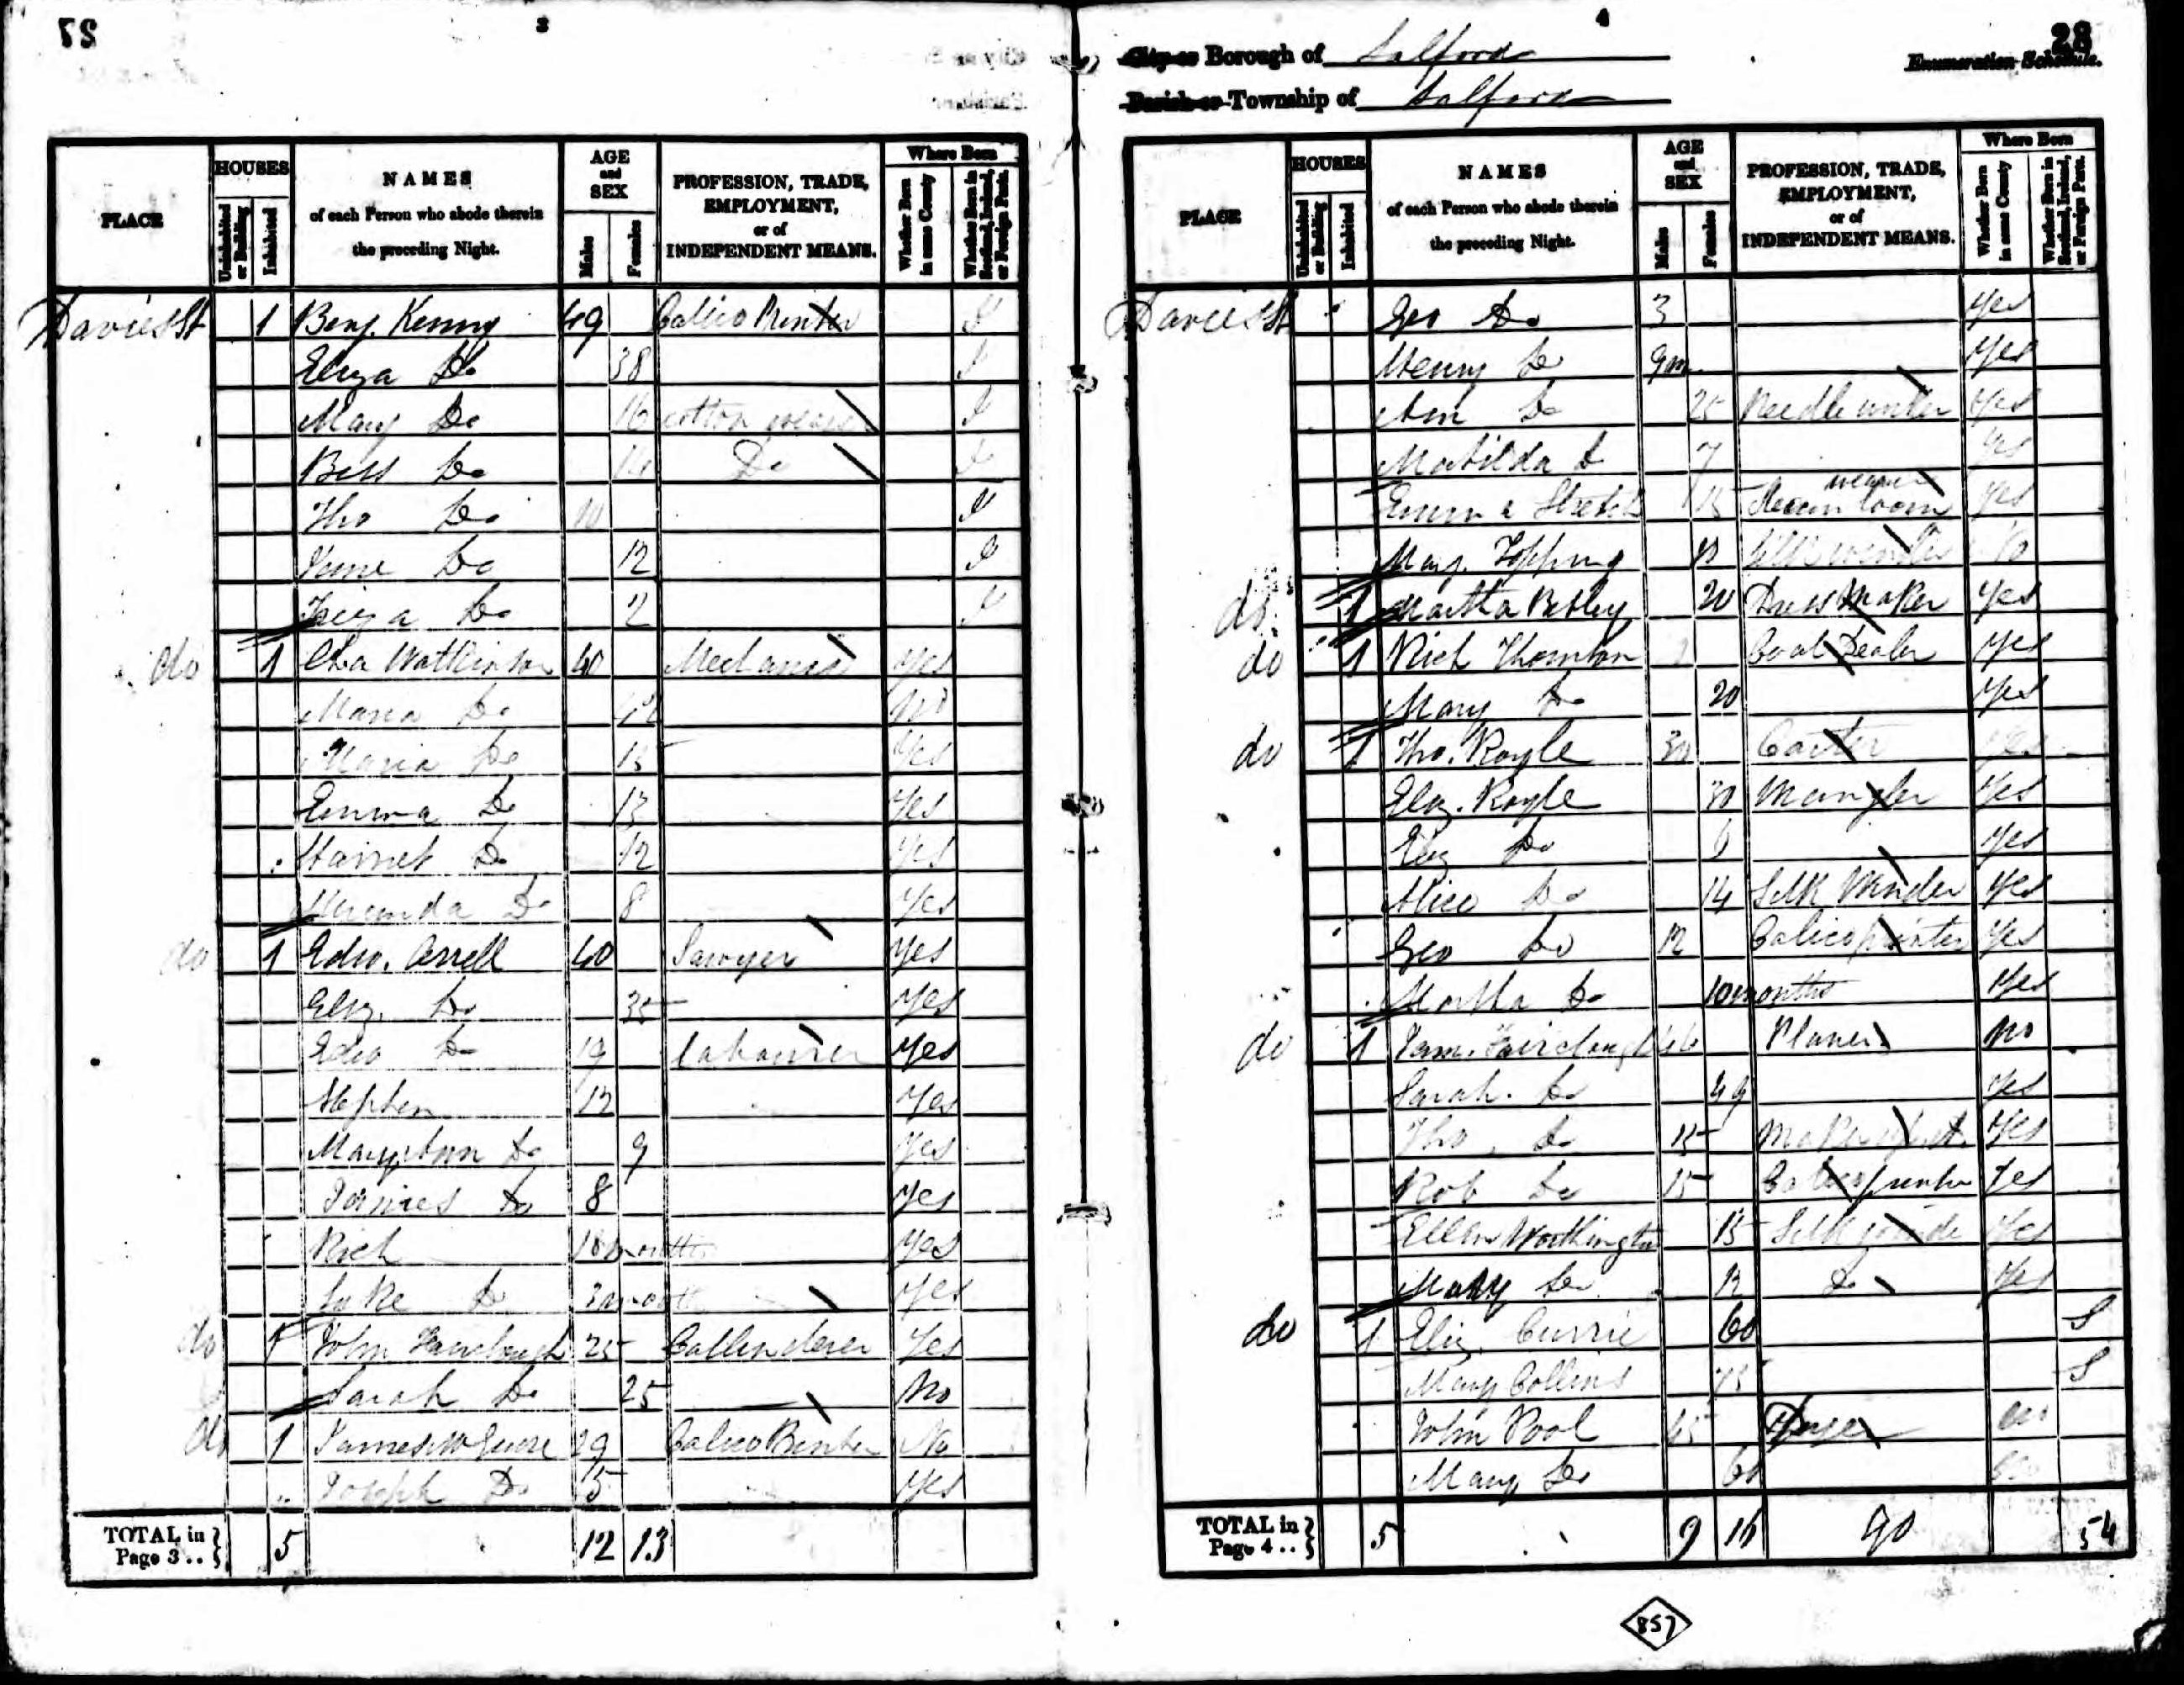 3
PLACE
HOUSES
Uninhabited or Building
Inhabited
NAMES
of each Person who abode therein
the preceding Night.
AGE
and
SEX
Males
Females
PROFESSION, TRADE,
EMPLOYMENT,
or of
INDEPENDENT MEANS.
Where Born
Whether Born in same County
Whether Born in Scotland, Ireland, or Foreign Parts.
Davies St 1 Benj. Kenny 49 Calico Printer I
Eliza Do 38 I
Mary Do 16 cotton I
Bess Do 14 Do I
Tho Do 10 I
Jane Do 12 I
Do 2 I
do 1 Cha Watkinson 40 Mechanic Yes
Maria Do No
Maria Do 15 Yes
Emma Do 13 Yes
Harriet Do 12 Yes
Do 8 Yes
do 1 Edw. 40 Sawyer Yes
Eliz. Do 35 Yes
Edw Do 19 Labourer Yes
Stephen 12 Yes
Mary Ann Do 9 Yes
James Do 8 Yes
Rich 18 months Yes
Luke Do 3 month Yes
do 1 John Fairclough 25 Callenderer Yes
Sarah Do 25 No
do 1 James 29 Calico Printer No
Joseph Do 15 Yes
TOTAL in Page 3.. 5 12 13
4
28
City or Borough of Salford
Enumeration Schedule.
Parish or Township of Salford
PLACE
HOUSES
Uninhabited or Building
Inhabited
NAMES
of each Person who abode therein
the preceding Night.
AGE
and
SEX
Males
Females
PROFESSION, TRADE,
EMPLOYMENT,
or of
INDEPENDENT MEANS.
Where Born
Whether Born in same County
Whether Born in Scotland, Ireland, or Foreign Parts.
Davies St Geo Do 3 Yes
Henry Do 9 m Yes
Ann Do 25 Needle Yes
Matilda Do 7 Yes
weaver
Emma 15 Steam loom Yes
Mary Topping No
do 1 Martha 20 Dress Maker Yes
do 1 Rich Thornton Coal Dealer Yes
Mary Do 20 Yes
do 1 Tho. Royle 30 Carter Yes
Eliz. Royle 30 Mangler Yes
Eliz Do Yes
Alice Do 14 Silk Winder Yes
Geo Do 12 Calico printer Yes
Martha Do 10 months Yes
do 1 Fairclough 46 Planer No
Sarah. Do 49 Yes
Tho. Do 15 Yes
Rob Do 15 Calico printer Yes
Ellen Worthington 15 Silk Yes
Mary Do 12 Do Yes
do 1 Eliz. Currie 60 S
Mary Collins 75 S
John Pool 65
Mary Do 60
TOTAL in Page 4.. 5 9 16 90 54
857